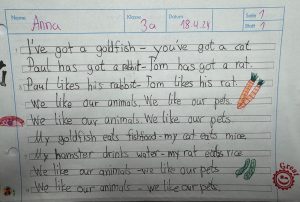 Name Anna Klasse 3a Datum 18.4.24 Seite 1
Blatt 1
I've got a goldfish - you've got a cat.
Paul has got a rabbit - Tom has got a rat.
Paul likes his rabbit - Tom likes his rat.
We like our animals. We like our pets.
We like our animals. We like our pets.
My goldfish eats fishfood - my cat eats mice.
My hamster drinks water - my rat eats rice.
We like our animals - we like our pets.
We like our animals - we like our pets.
Great